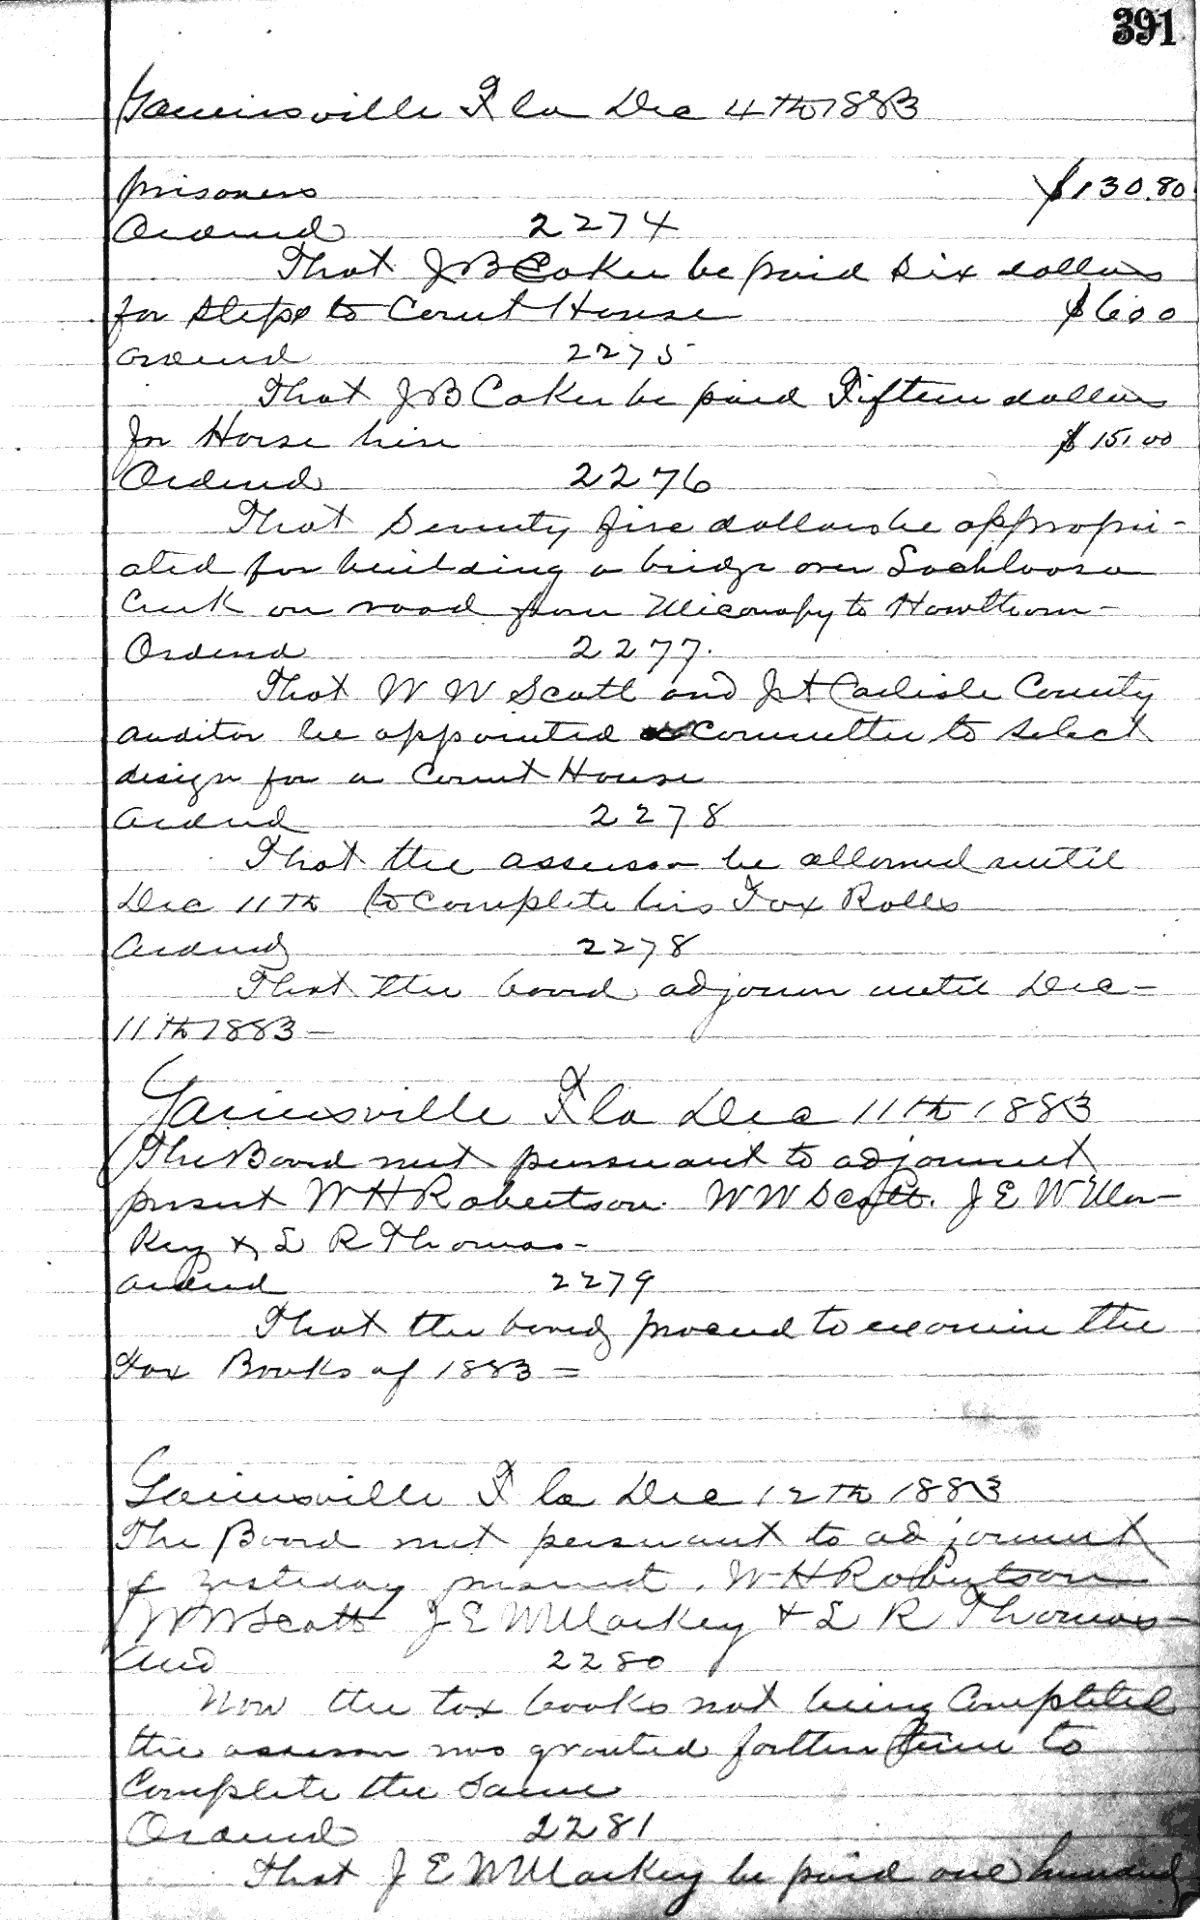 391
Gainesville Fla Dec 4th 1883
prisoners $130.80
Ordered 2274
That J B Coker be paid Six dollars
for Steps to Court House $6.00
Ordered 2275
That J B Coker be paid Fifteen dollars
for Horse hire $15.00
Ordered 2276
That Seventy five dollars be appropri-
ated for building a bridge over Lochloosa
Creek on road from Micanopy to Hawthorn-
Ordered 2277.
That W W Scott and Carlisle County
auditor be appointed Committee to Select
design for a Court House
Ordered 2278
That the assessor be allowed until
Dec 11th to Complete his Tax Rolls
Ordered 2278
That the board adjourn until Dec-
11th 1883-
Gainesville Fla Dec 11th 1883
The Board met persuant to adjournment
present W H Robertson. W W Scott. J E W
& L R Thomas-
Ordered 2279
That the board proceed to examine the
Tax Books of 1883 =
Gainesville Fla Dec 12th 1883
The Board met persuant to adjournment
of yesterday present. W H Robertson
W W Scott J E W & L R Thomas-
And 2280
Now the tax books not being Completed
the assessor was granted further time to
Complete the Same
Ordered 2281
That J E W be paid one hundred